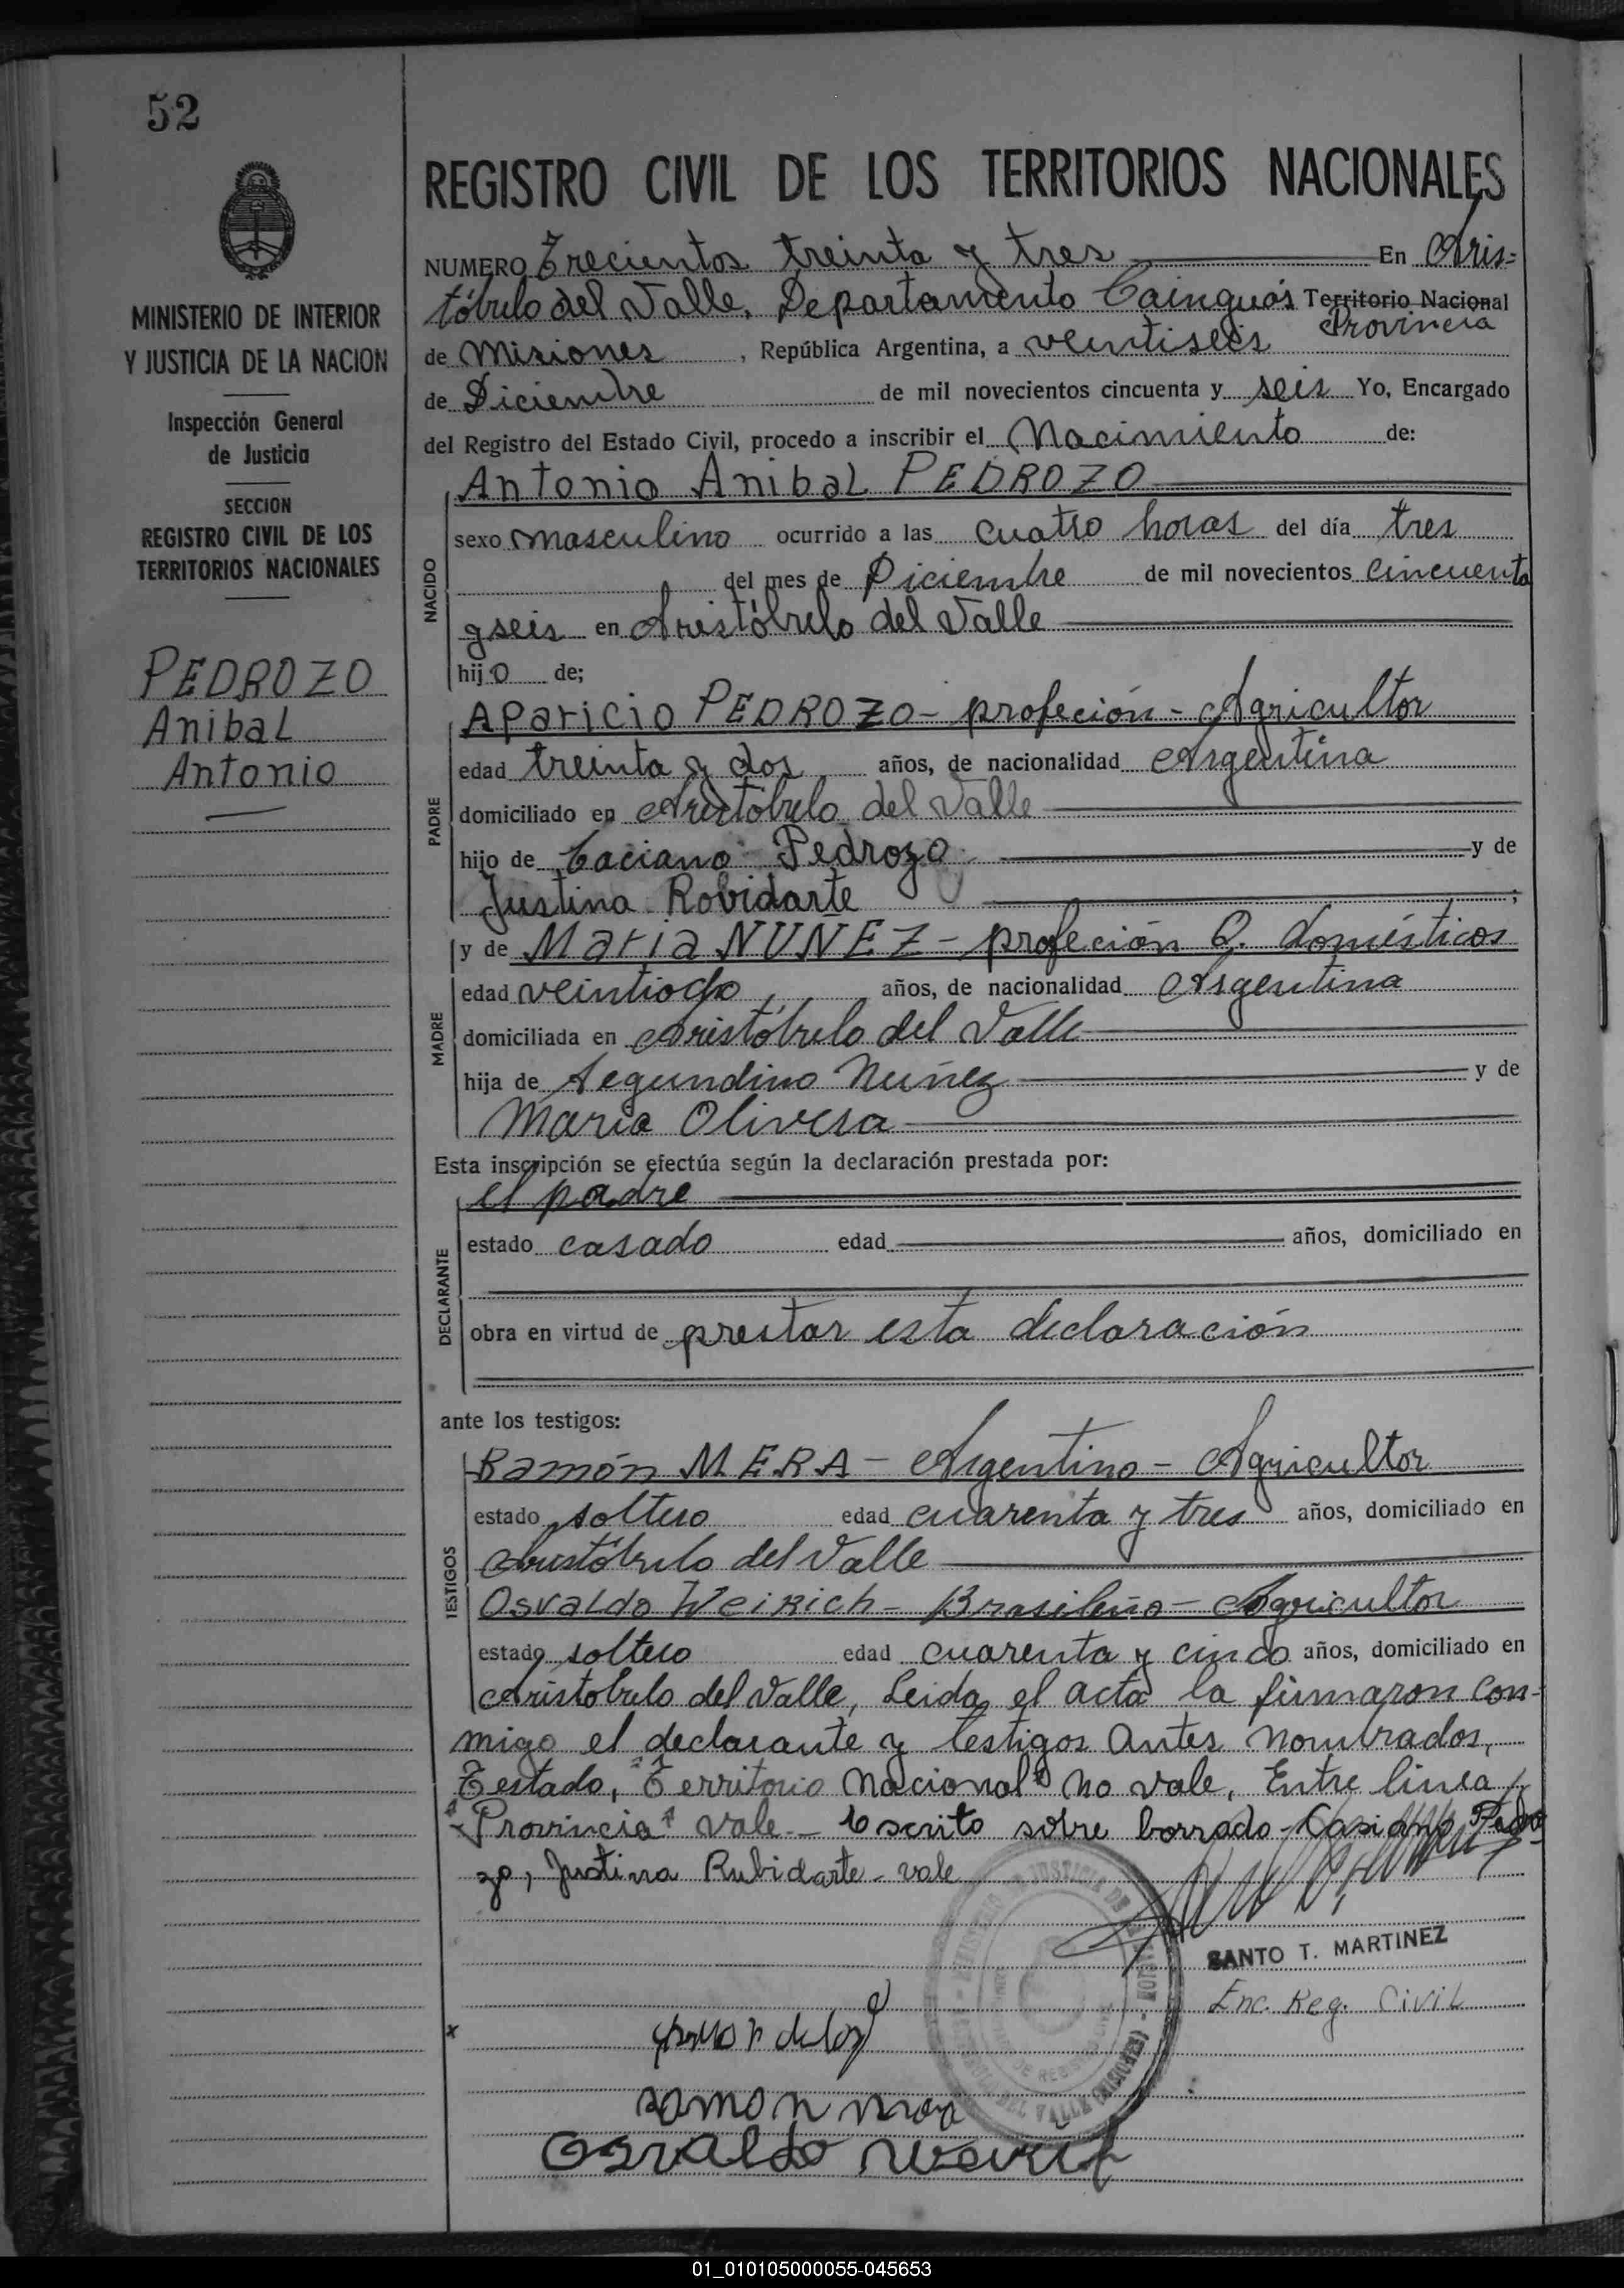 52
REGISTRO CIVIL DE LOS TERRITORIOS NACIONALES
NUMERO Trecientos treinta y tres En Aris=
tóbulo del Valle, Departamento Cainguás Territorio Nacional
Provincia
de Misiones, República Argentina, a veintiseis
de Diciembre de mil novecientos cincuenta y seis Yo, Encargado
del Registro del Estado Civil, procedo a inscribir el Nacimiento de:
MINISTERIO DE INTERIOR
Y JUSTICIA DE LA NACION
Inspección General
de Justicia
SECCION
REGISTRO CIVIL DE LOS
TERRITORIOS NACIONALES
PEDROZO
Anibal
Antonio
NACIDO
Antonio Anibal PEDROZO
sexo masculino ocurrido a las cuatro horas del día tres
del mes de Diciembre de mil novecientos cincuenta
y seis en Aristóbulo del Valle
hijo de;
PADRE
Aparicio PEDROZO - profeción - Agricultor
edad treinta y dos años, de nacionalidad Argentina
domiciliado en Aristóbulo del Valle
hijo de Caciano Pedrozo y de
Justina Robidarte;
MADRE
y de Maria NUÑEZ - profeción Q. domésticos
edad veintiocho, años, de nacionalidad Argentina
domiciliada en Aristóbulo del Valle
hija de Segundino Nuñez y de
Maria Olivera
Esta inscripción se efectúa según la declaración prestada por:
DECLARANTE
el padre
estado casado edad años, domiciliado en
obra en virtud de prestar esta declaración
ante los testigos:
TESTIGOS
Ramón MERA - Argentino - Agricultor
estado soltero edad cuarenta y tres años, domiciliado en
Aristóbulo del Valle
Osvaldo Weirich - Brasileño - Agricultor
estado soltero edad cuarenta y cinco años, domiciliado en
Aristobulo del Valle, Leida el acta la firmaron con-
migo el declarante y testigos antes nombrados,
Testado, "Territorio Nacional" no vale, Entre linea
"Provincia" vale - Escrito sobre borrado - Casiano Pedro
zo, Justina Rubidarte - vale
SANTO T. MARTINEZ
Enc. Reg. Civil
JUSTICIA DE
DEL VALLE (MISIONES)
x
ramon mera
Osvaldo
01_010105000055-045653